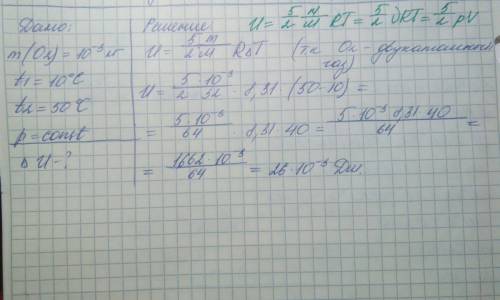 Дано:
m(O₂) = 10⁻³ кг
t₁ = 10°C
t₂ = 50°C
p = const
ΔU - ?
Решение:
U = 5/2 m/M RT = 5/2 νRT = 5/2 pV
U = 5/2 m/M RΔT (т.к O₂ - двухатомный газ)
U = 5/2 · 10⁻³/32 · 8,31 · (50-10) =
= 5·10⁻³/64 · 8,31 · 40 = 5·10⁻³·8,31·40/64 =
= 1662·10⁻³/64 = 26·10⁻³ Дж.